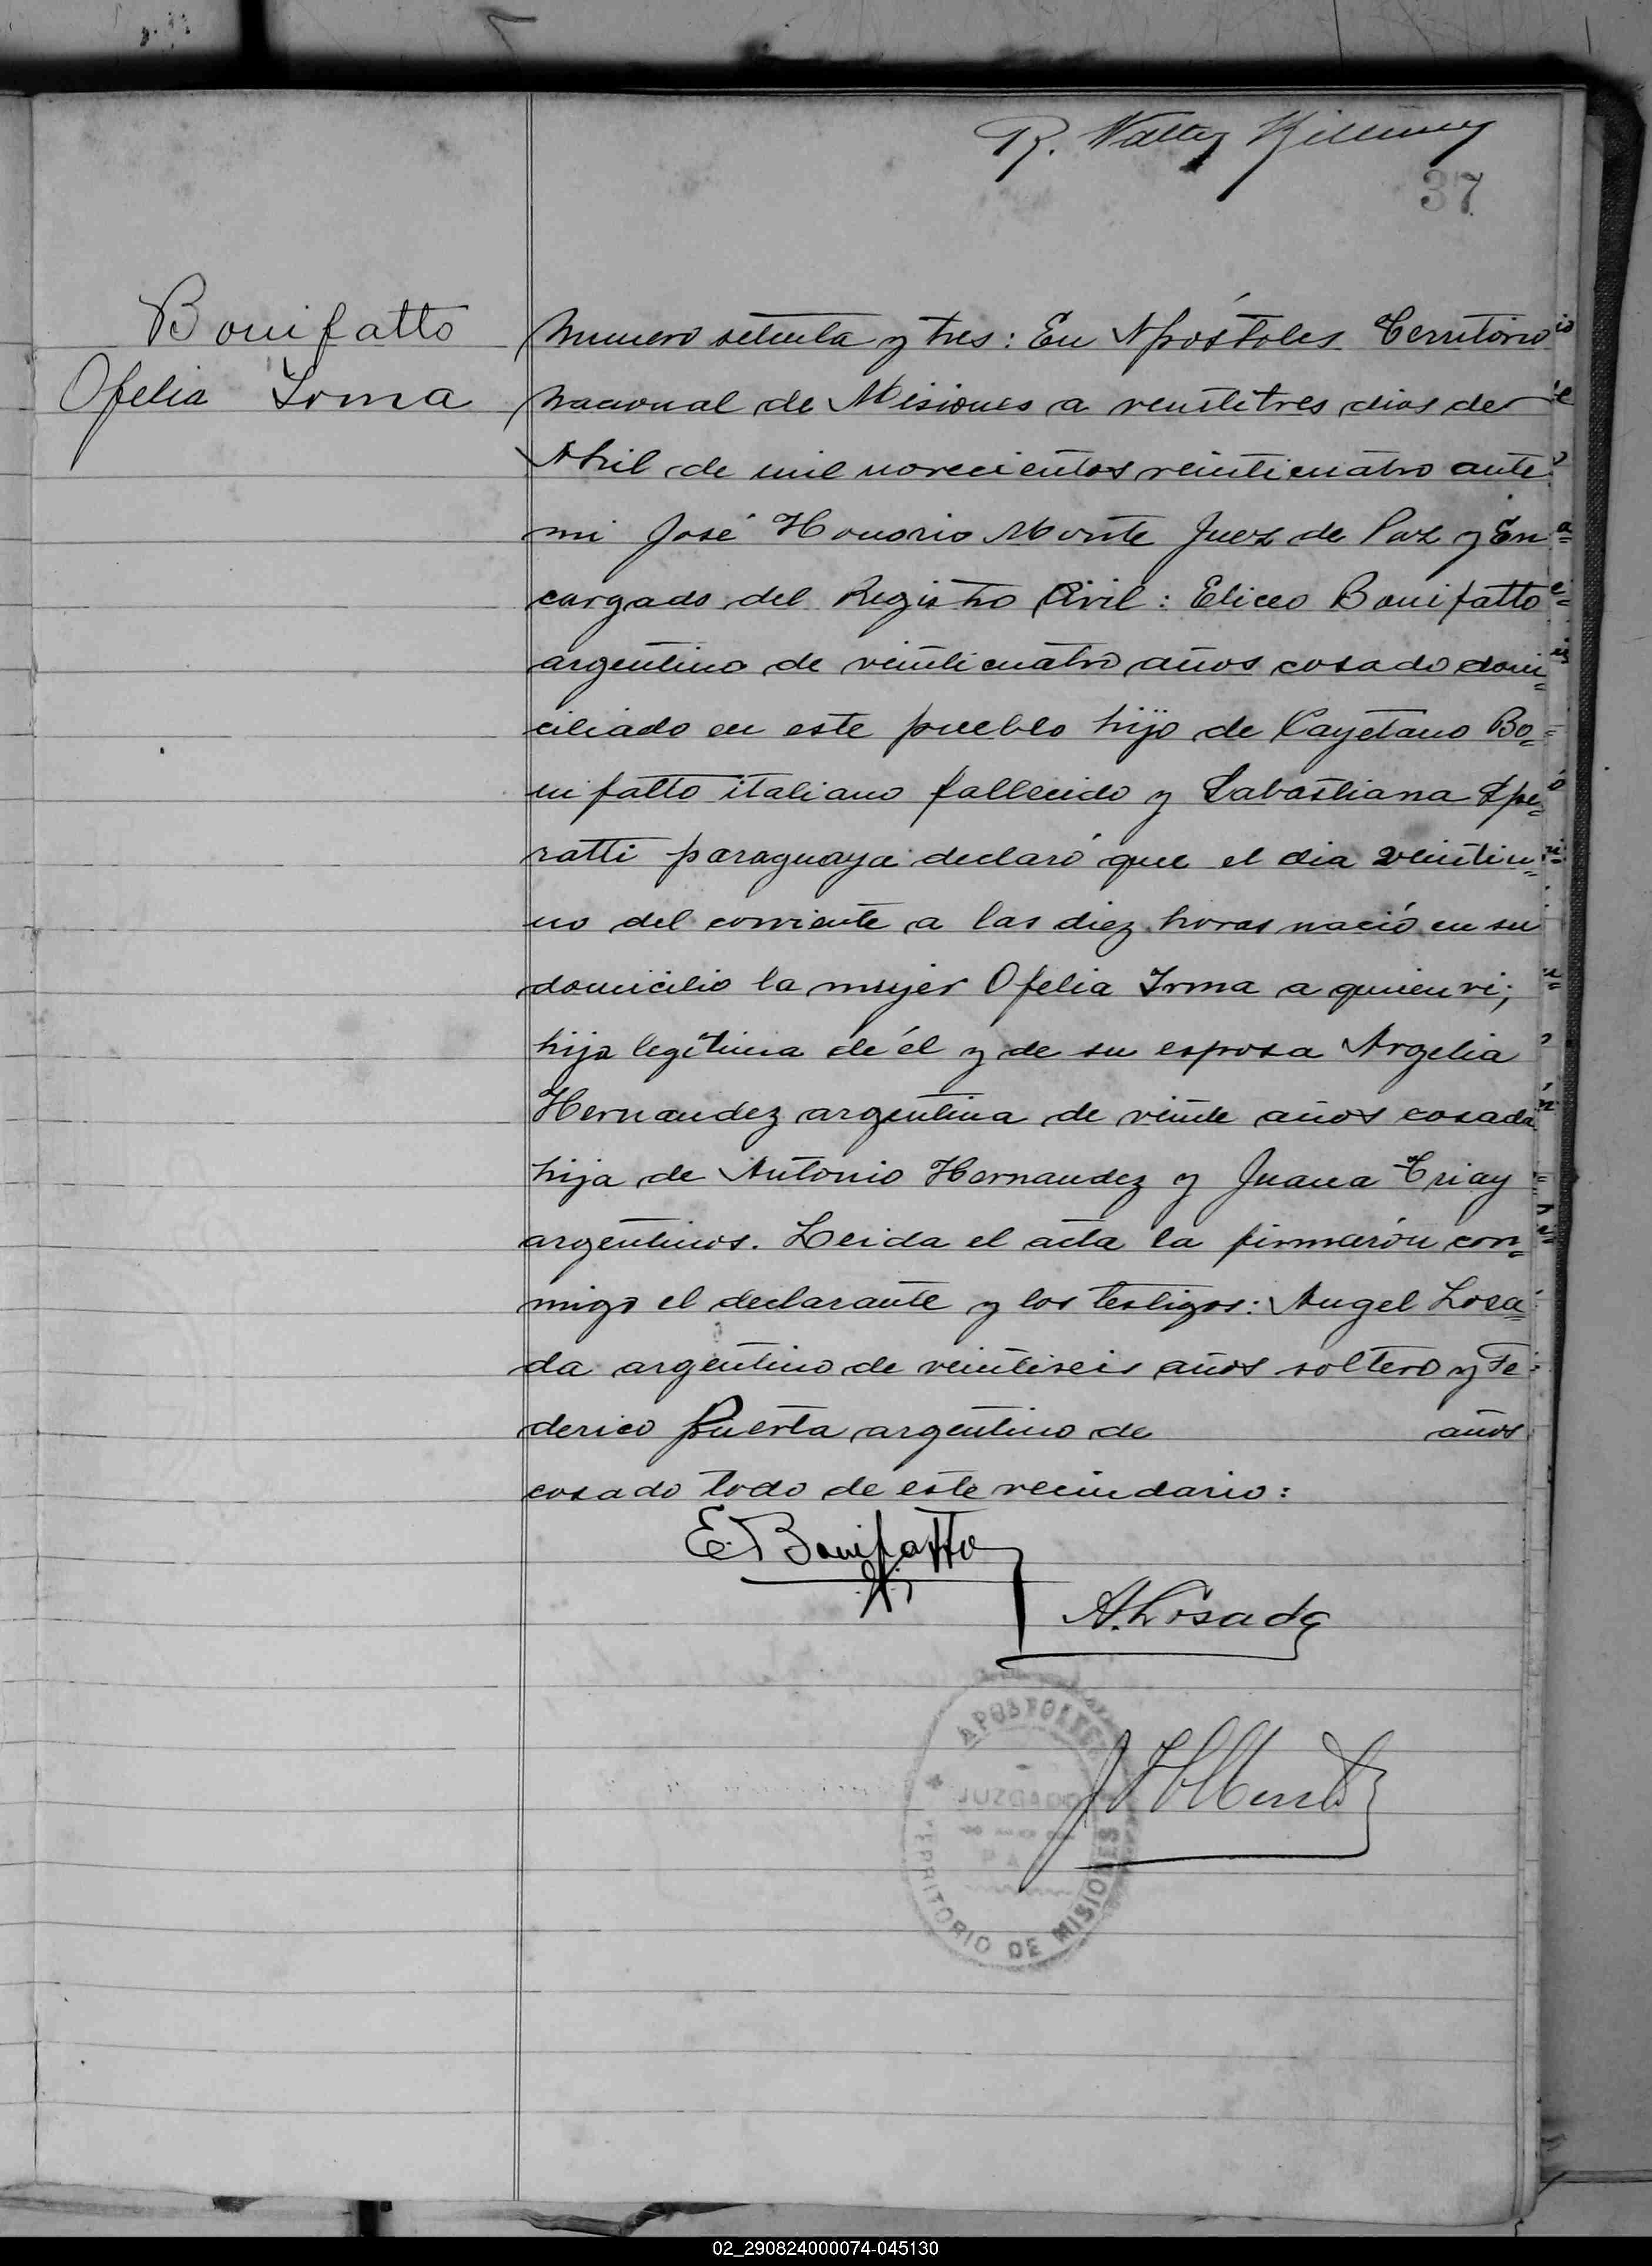 R. Walter
37
Bonifatto
Ofelia Irma
Numero setenta y tres: En Apóstoles Territorio
Nacional de Misiones a veintitres dias de
Abril de mil novecientos veinticuatro ante
mi José Honorio Monte Juez de Paz y En
cargado del Registro Civil: Eliceo Bonifatto
argentino de veinticuatro años casado domi=
ciliado en este pueblo hijo de Cayetano Bo=
nifatto italiano fallecido y Sabastiana Spe=
ratti paraguaya declaró que el dia veintiu=
no del corriente a las diez horas nació en su
domicilio la mujer Ofelia Irma a quien vi;
hija legitima de él y de su esposa Argelia
Hernandez argentina de veinte años casada
hija de Antonio Hernandez y Juana Triay
argentinos. Leida el acta la firmarón con=
migo el declarante y los testigos: Angel Losa=
da argentino de veintiseis años soltero y Fe
derico Puerta argentino de años
casado todo de este vecindario:
E. Bonifatto
A. Losada
APOSTOLES
JUZGADO
PAZ
TERRITORIO DE MISIONES